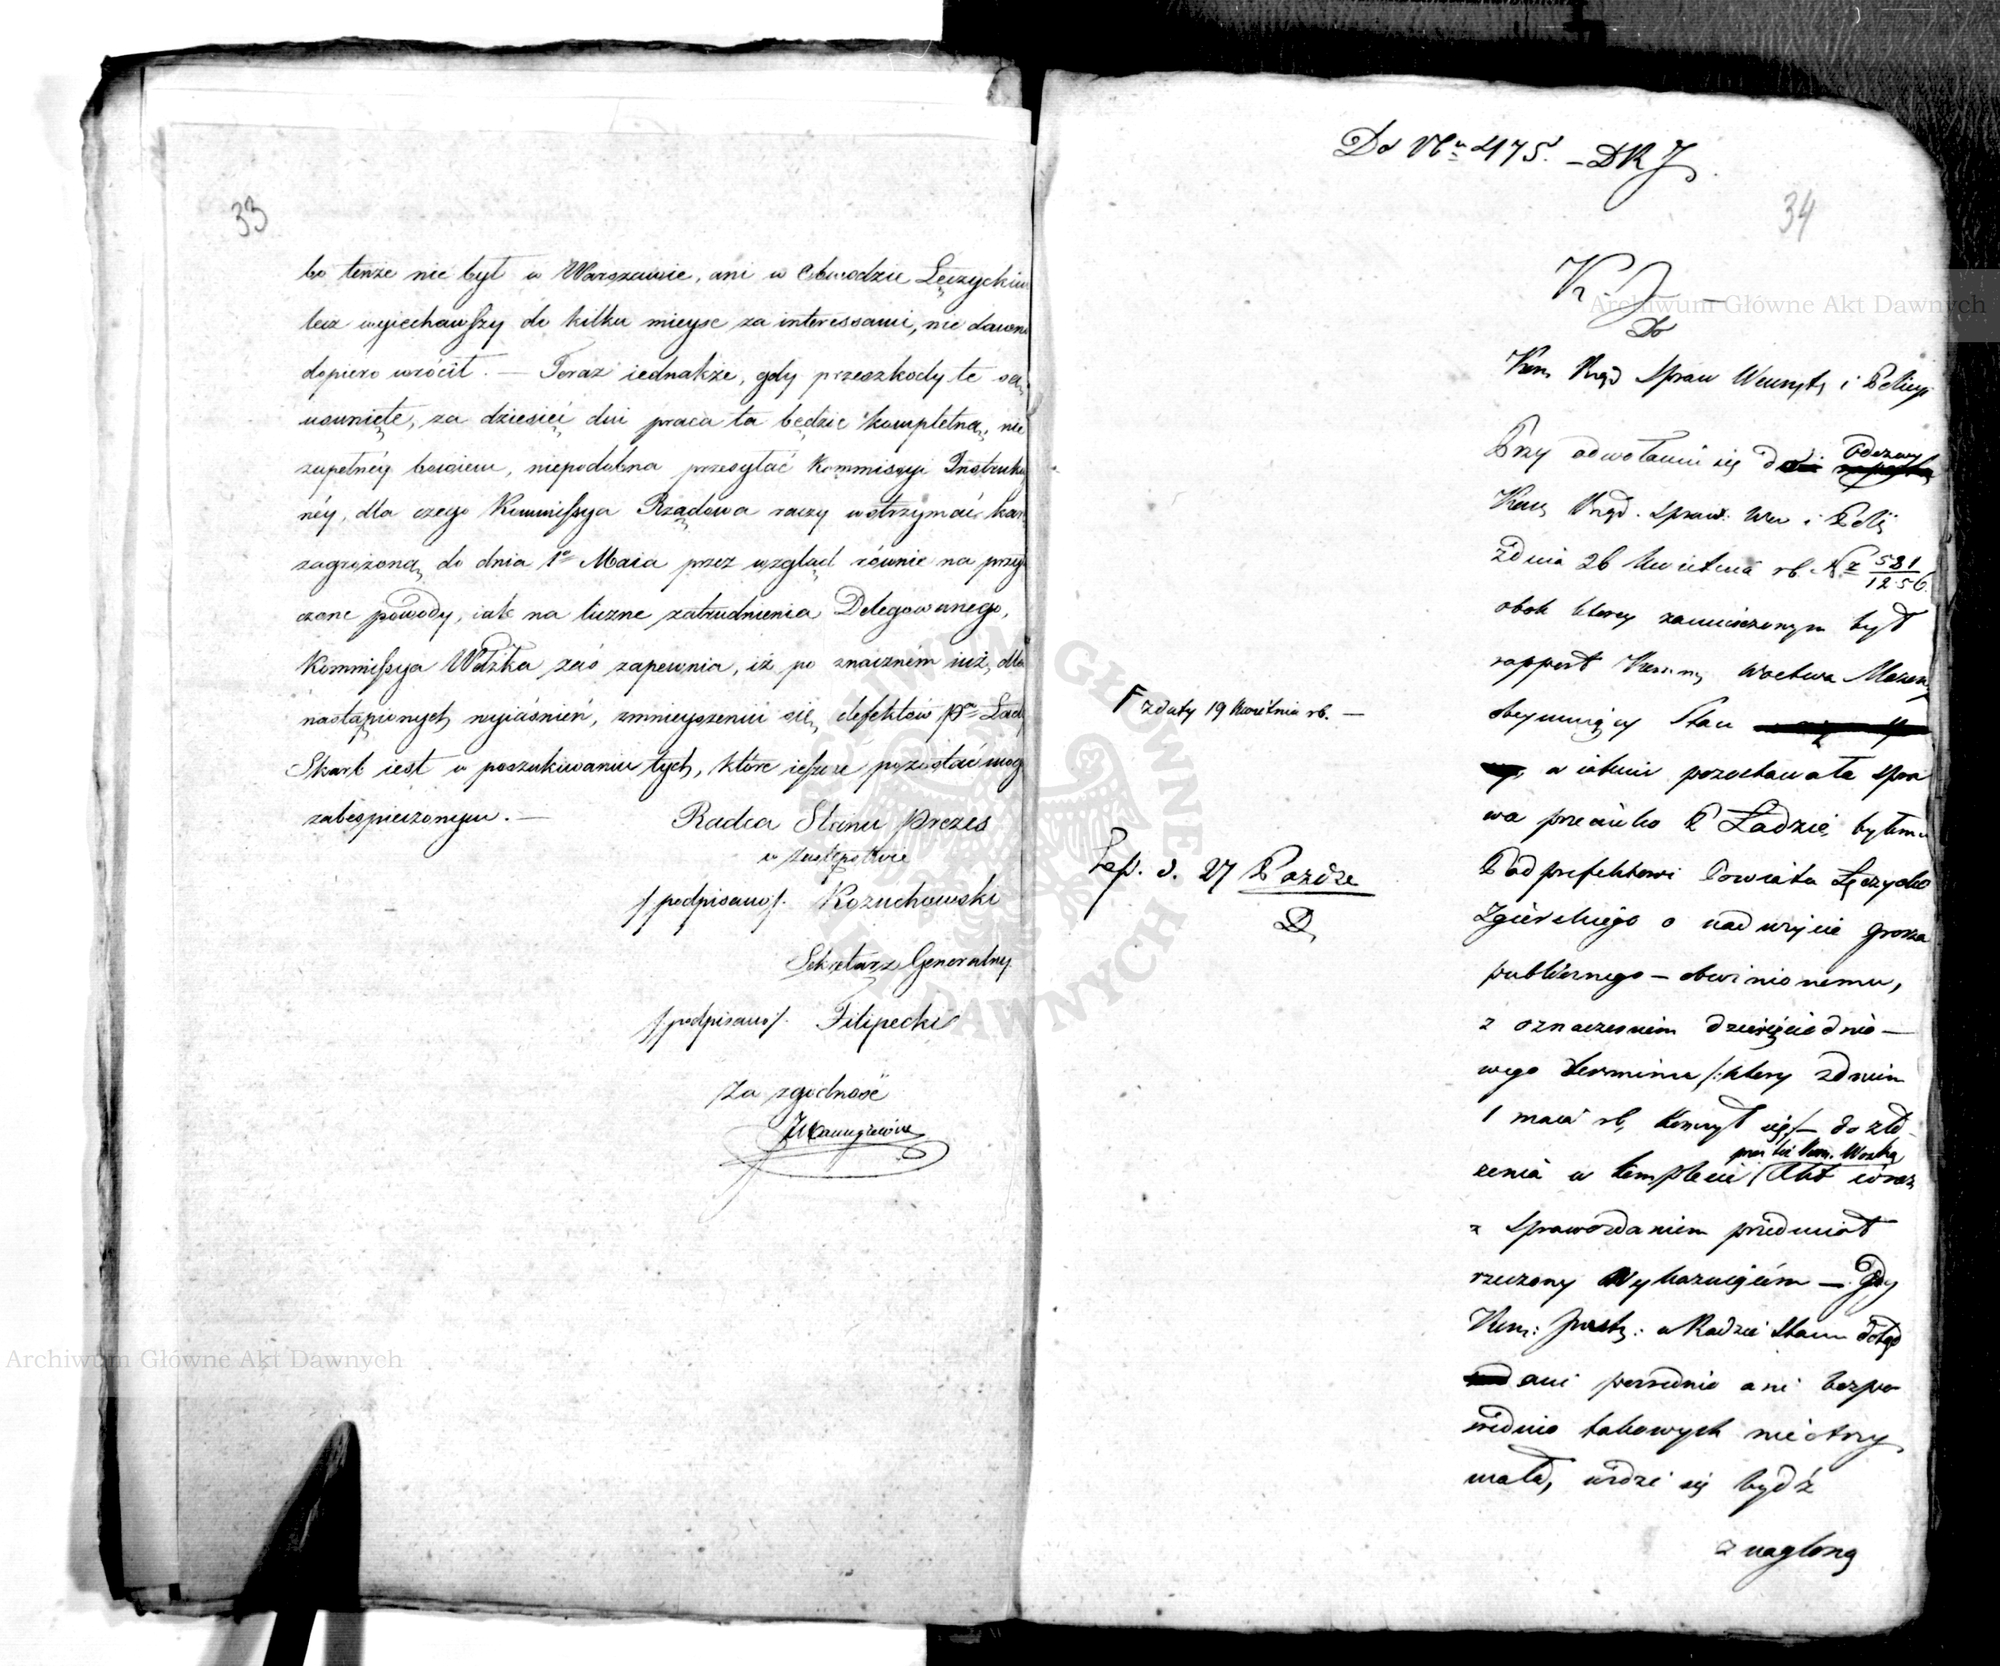 33
bo tenże nie był w Warszawie, ani w Obwodzie Łęczyckim
lecz wyiechawszy do kilku mieysc za interessami, nie dawno
dopiero wrócił. — Teraz iednakże, gdy przeszkody te są
usunięte, za dziesięć dni praca ta będzie kompletną, nie
zupełnéy bowiem, niepodobna przesyłać Kommissyi Instruk
néy, dla czego Kommissya Rządowa raczy wstrzymać kar
zagrożoną do dnia 1o Maia przez wzgląd równie na przy
czone powody, iak na liczne zatrudnienia Delegowanego,
Kommissya Wdzka zaś zapewnia, iż po znaczném iuż, dla
nastąpionych wyiaśnień, zmnieyszeniu się defektów Pa Ład
Skarb iest w poszukiwaniu tych, które ieszcze pozostać mog
zabespieczonym. —
Radca Stanu Prezes
w zastępstwie
/podpisano/. Kożuchowski
Sekretarz Generalny
/podpisano/. Filipecki
Za zgodność
Do Nr 4175. — DKJ.
34
K. J. —
Do
Kom Rząd Spraw Wewnętz i Policyi
Przy odwołaniu się do Odezwy
Kom Rząd. Spraw: We i Polij
z dnia 26 Kwietnia rb. Nr 581/1256.
obok którey zamieszczonym był
rapport Kommi Woctwa Mazow
F z daty 19 Kwietnia rb. —
obeymuiący Stan
w iakim pozostawała spra
wa przeciwko P Ładzie, byłemu
Podprefektowi Powiatu Łęczycko
Exp. d. 27 Paźdze
Zgierskiego o nadużycie grosza
publicznego — obwinionemu,
z oznaczeniem dziesięciodnio—
wego terminu /: który z dniem
1 maia rb, kończył się/— do zło-
przez też Kom. Wozką
żenia w komplecie Akt wraz
z sprawozdaniem przedmiot
rzeczony wykazuiącém — Gdy
Kom: Instr: w Radzie Stanu dotąd
ani pośrednio ani bezpo
średnio takowych nie otrzy
mała, widzi się bydź
znagloną